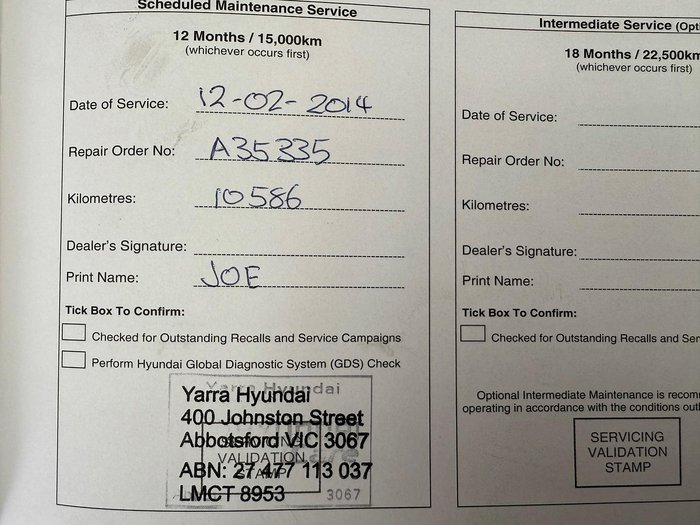 Scheduled Maintenance Service
12 Months / 15,000km
(whichever occurs first)
Date of Service: 12-02-2014
Repair Order No: A35335
Kilometres: 10586
Dealer's Signature:
Print Name: JOE
Tick Box To Confirm:
Checked for Outstanding Recalls and Service Campaigns
Perform Hyundai Global Diagnostic System (GDS) Check
Yarra Hyundai
Yarra Hyundai
400 Johnston Street
Abbotsford VIC 3067
SERVICING
VALIDATION
STAMP
ABN: 27 477 113 037
LMCT 8953
3067
Intermediate Service (Opti
18 Months / 22,500km
(whichever occurs first)
Date of Service:
Repair Order No:
Kilometres:
Dealer's Signature:
Print Name:
Tick Box To Confirm:
Checked for Outstanding Recalls and Ser
Optional Intermediate Maintenance is recom
operating in accordance with the conditions outl
SERVICING
VALIDATION
STAMP